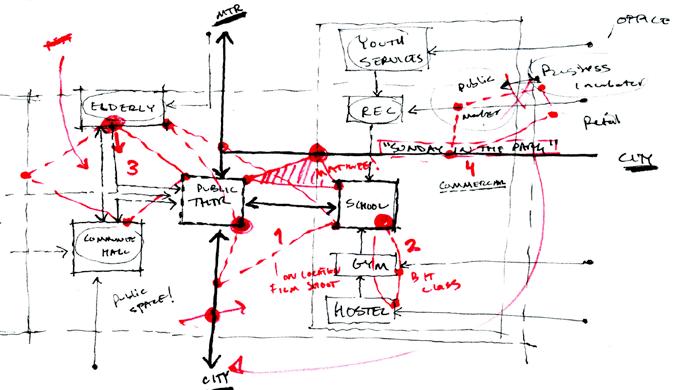 MTR
OFFICE
YOUTH
SERVICES
Business
Incubator
Public
market
REC
Retail
ELDERLY
"SUNDAY IN THE PARK"
CITY
3
4
COMMERCIAL
PUBLIC
THTR
SCHOOL
1
2
COMMUNITY
HALL
ON LOCATION
FILM SHOOT
GYM
CLASS
Public
SPACE!
HOSTEL
CITY